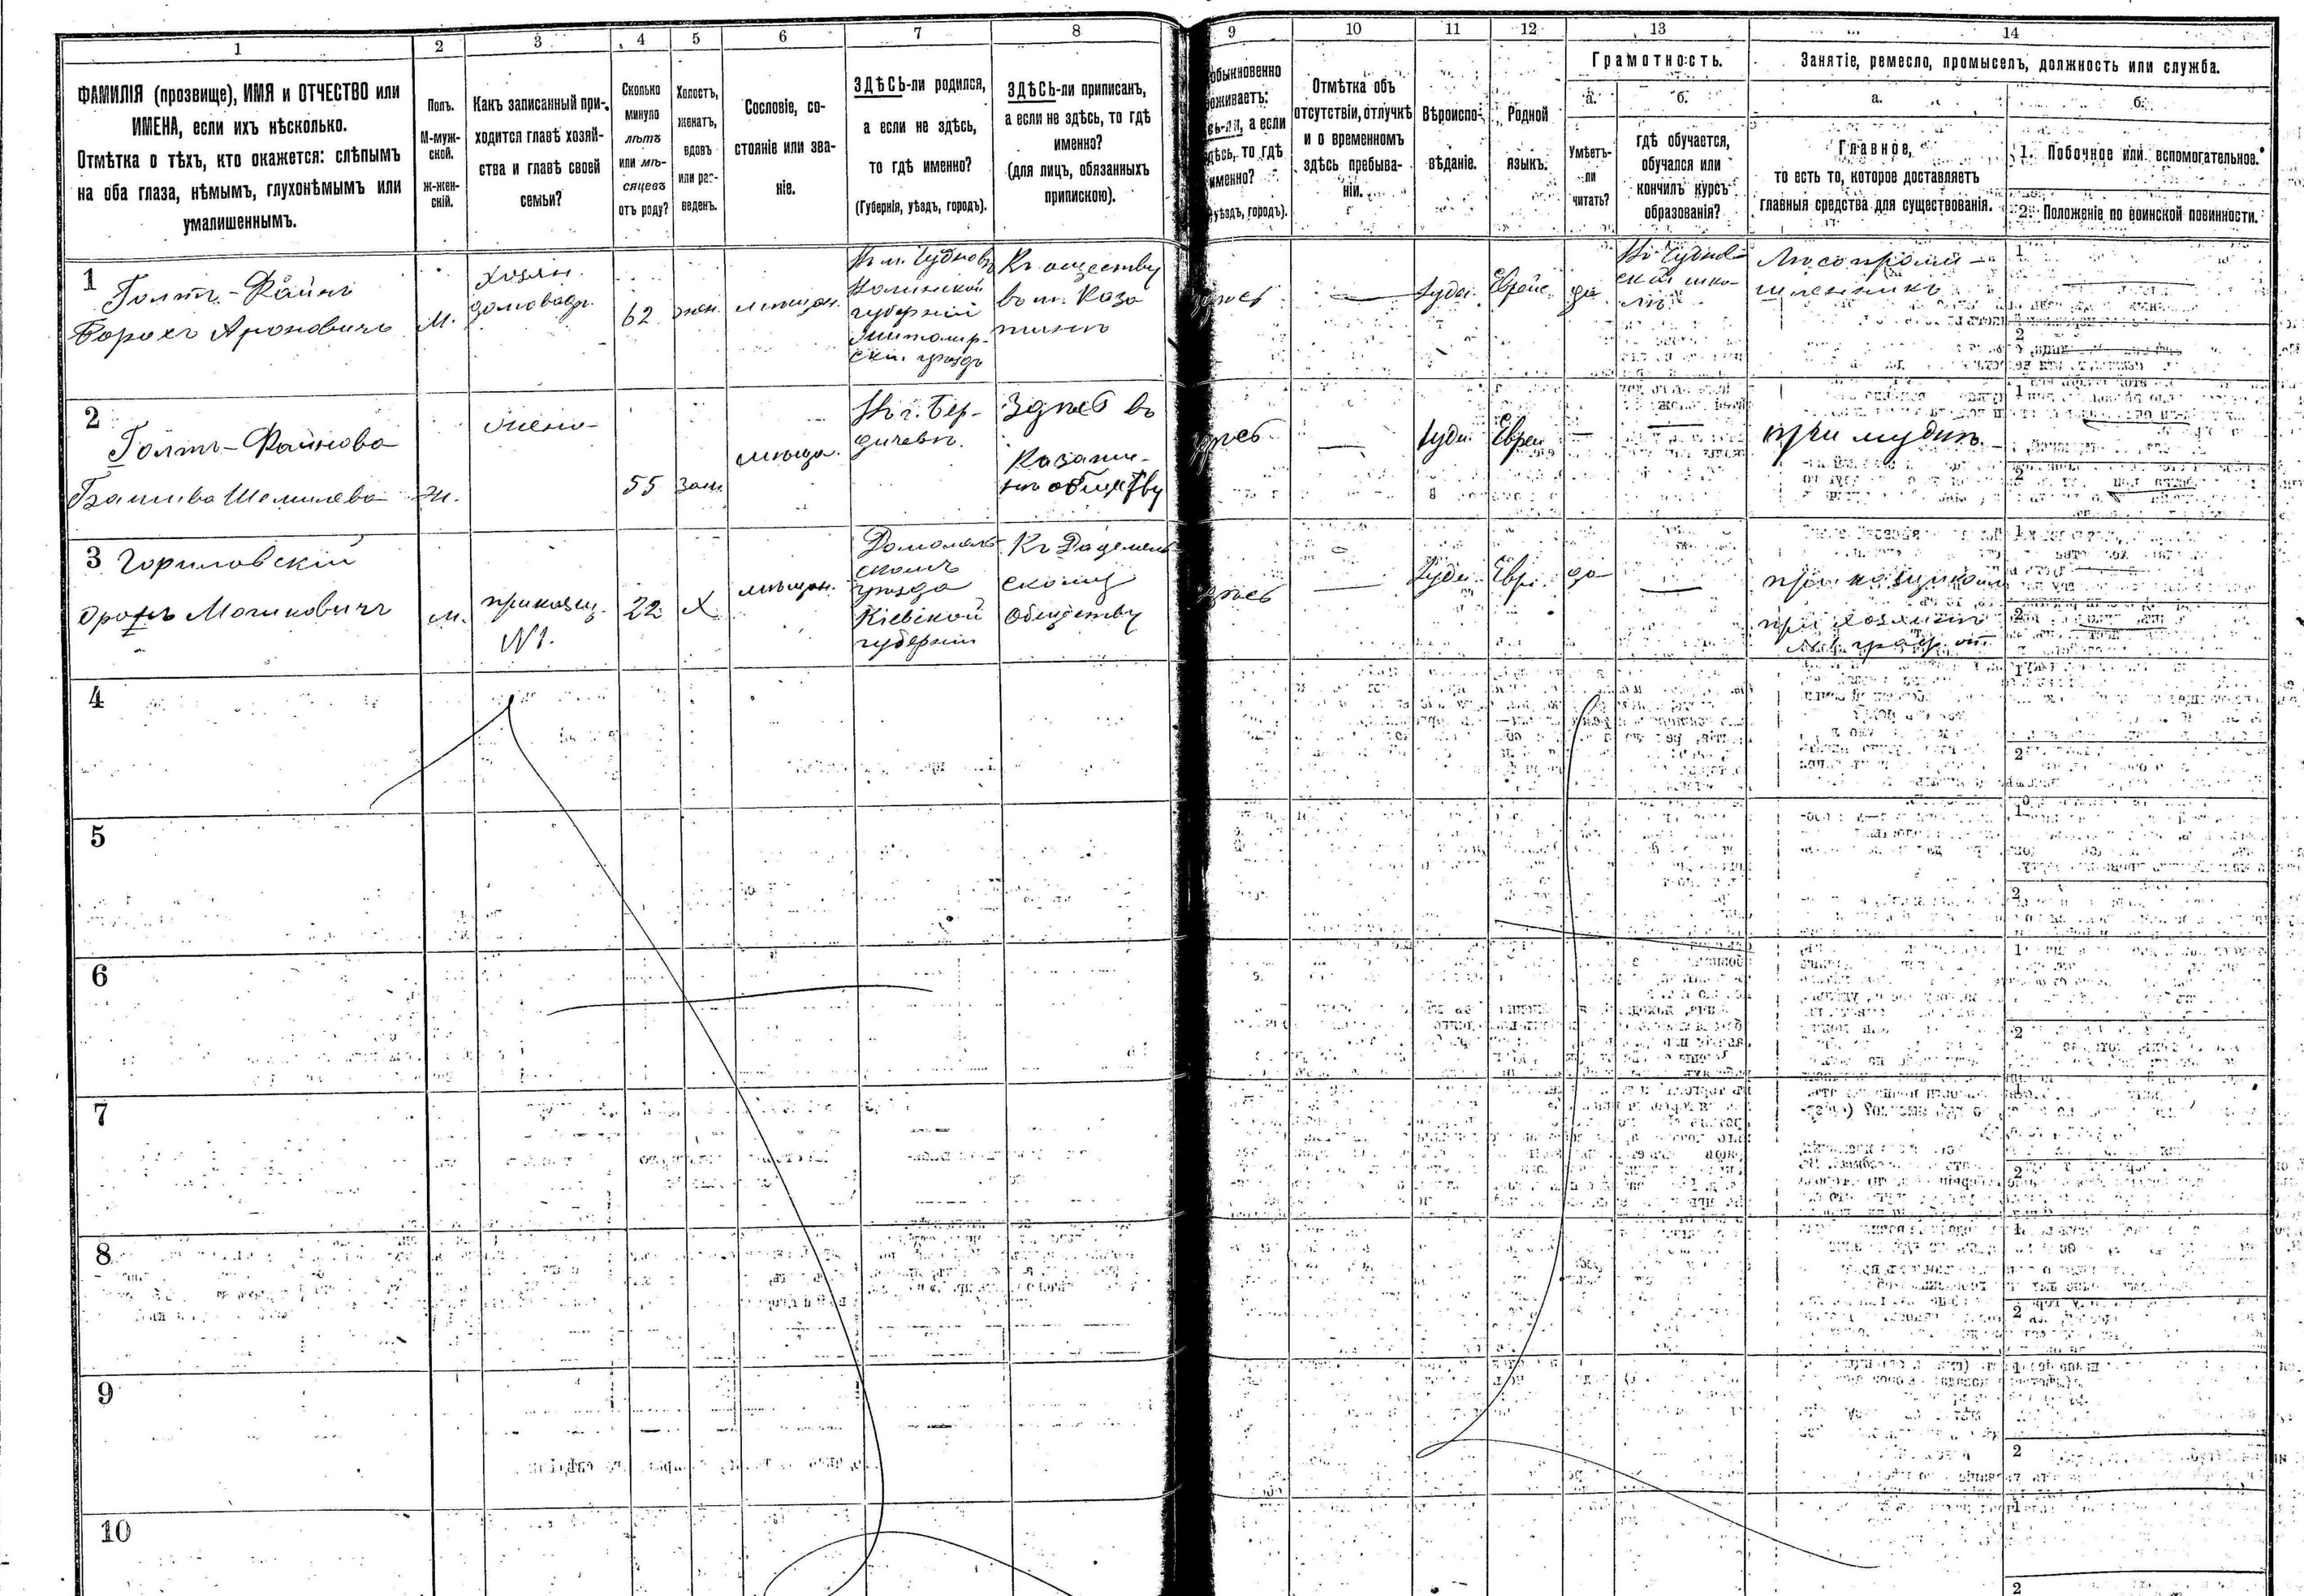 1 2 3 4 5 6 7 8 9 10 11 12 13 14
ФАМИЛІЯ (прозвище), ИМЯ и ОТЧЕСТВО или
ИМЕНА, если ихъ нѣсколько.
Отмѣтка о тѣхъ, кто окажется: слѣпымъ
на оба глаза, нѣмымъ, глухонѣмымъ или
умалишеннымъ.
Полъ.
М-муж-
ской.
Ж-жен-
скій.
Какъ записанный при-
ходится главѣ хозяй-
ства и главѣ своей
семьи?
Сколько
минуло
лѣтъ
или мѣ-
сяцевъ
отъ роду?
Холостъ,
женатъ,
вдовъ
или раз-
веденъ.
Сословіе, со-
стояніе или зва-
ніе.
ЗДѢСЬ-ли родился,
а если не здѣсь,
то гдѣ именно?
(Губернія, уѣздъ, городъ).
ЗДѢСЬ-ли приписанъ,
а если не здѣсь, то гдѣ
именно?
(для лицъ, обязанныхъ
припискою).
обыкновенно
оживаетъ:
сь-ли, а если
дѣсь, то гдѣ
именно?
уѣздъ, городъ).
Отмѣтка объ
отсутствіи, отлучкѣ
и о временномъ
здѣсь пребыва-
ніи.
Вѣроиспо-
вѣданіе.
Родной
языкъ.
Грамотность.
а.
Умѣетъ-
ли
читать?
б.
гдѣ обучается,
обучался или
кончилъ курсъ
образованія?
Занятіе, ремесло, промыселъ, должность или служба.
а.
Главное,
то есть то, которое доставляетъ
главныя средства для существованія.
б.
1. Побочное или вспомогательное.
2. Положеніе по воинской повинности.
1
Голт-Файнъ
Борохъ Ароновичъ
М.
хозяин
домовлад.
62
жен.
мещан.
Въ м. Чудновѣ
Волинской
губерніи
Житомир-
скій уѣздъ
Къ обществу
въ м. Каза
тинѣ
здѣсь
—
Іуде
Еврейс
да
Въ Чуднов-
ской шко-
лѣ
Лѣсопромы-
шленникъ
2
Голт-Файнова
Шемилева
Ж.
жена
55
зам.
мѣща.
Въ г. Бер-
дичевѣ.
Здѣсь въ
Казати-
нѣ обществу
здѣсь
—
Іуде
Еврей
—
—
при мужѣ.
3 Гориловскій
Моликовичъ
м.
приказч.
№1.
22
Х
мѣщан.
уѣзда
Кіевской
губерніи
Къ Радомысль
скому
обществу
здѣсь
—
Іуде
Евре
да
—
приказчикомъ
при хозяинѣ
4
5
6
7
8
9
10